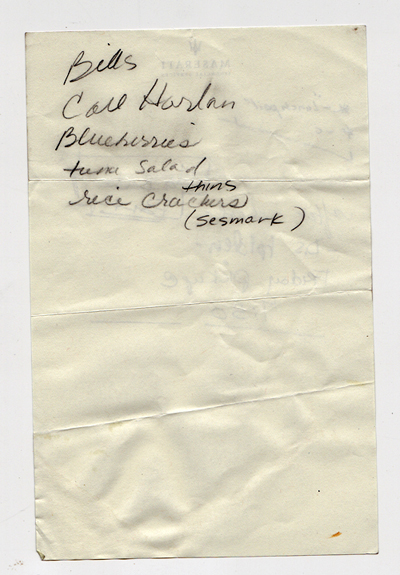 Bills
Call Harlan
Blueberries
tuna salad
thins
rice Crackers
(sesmark)